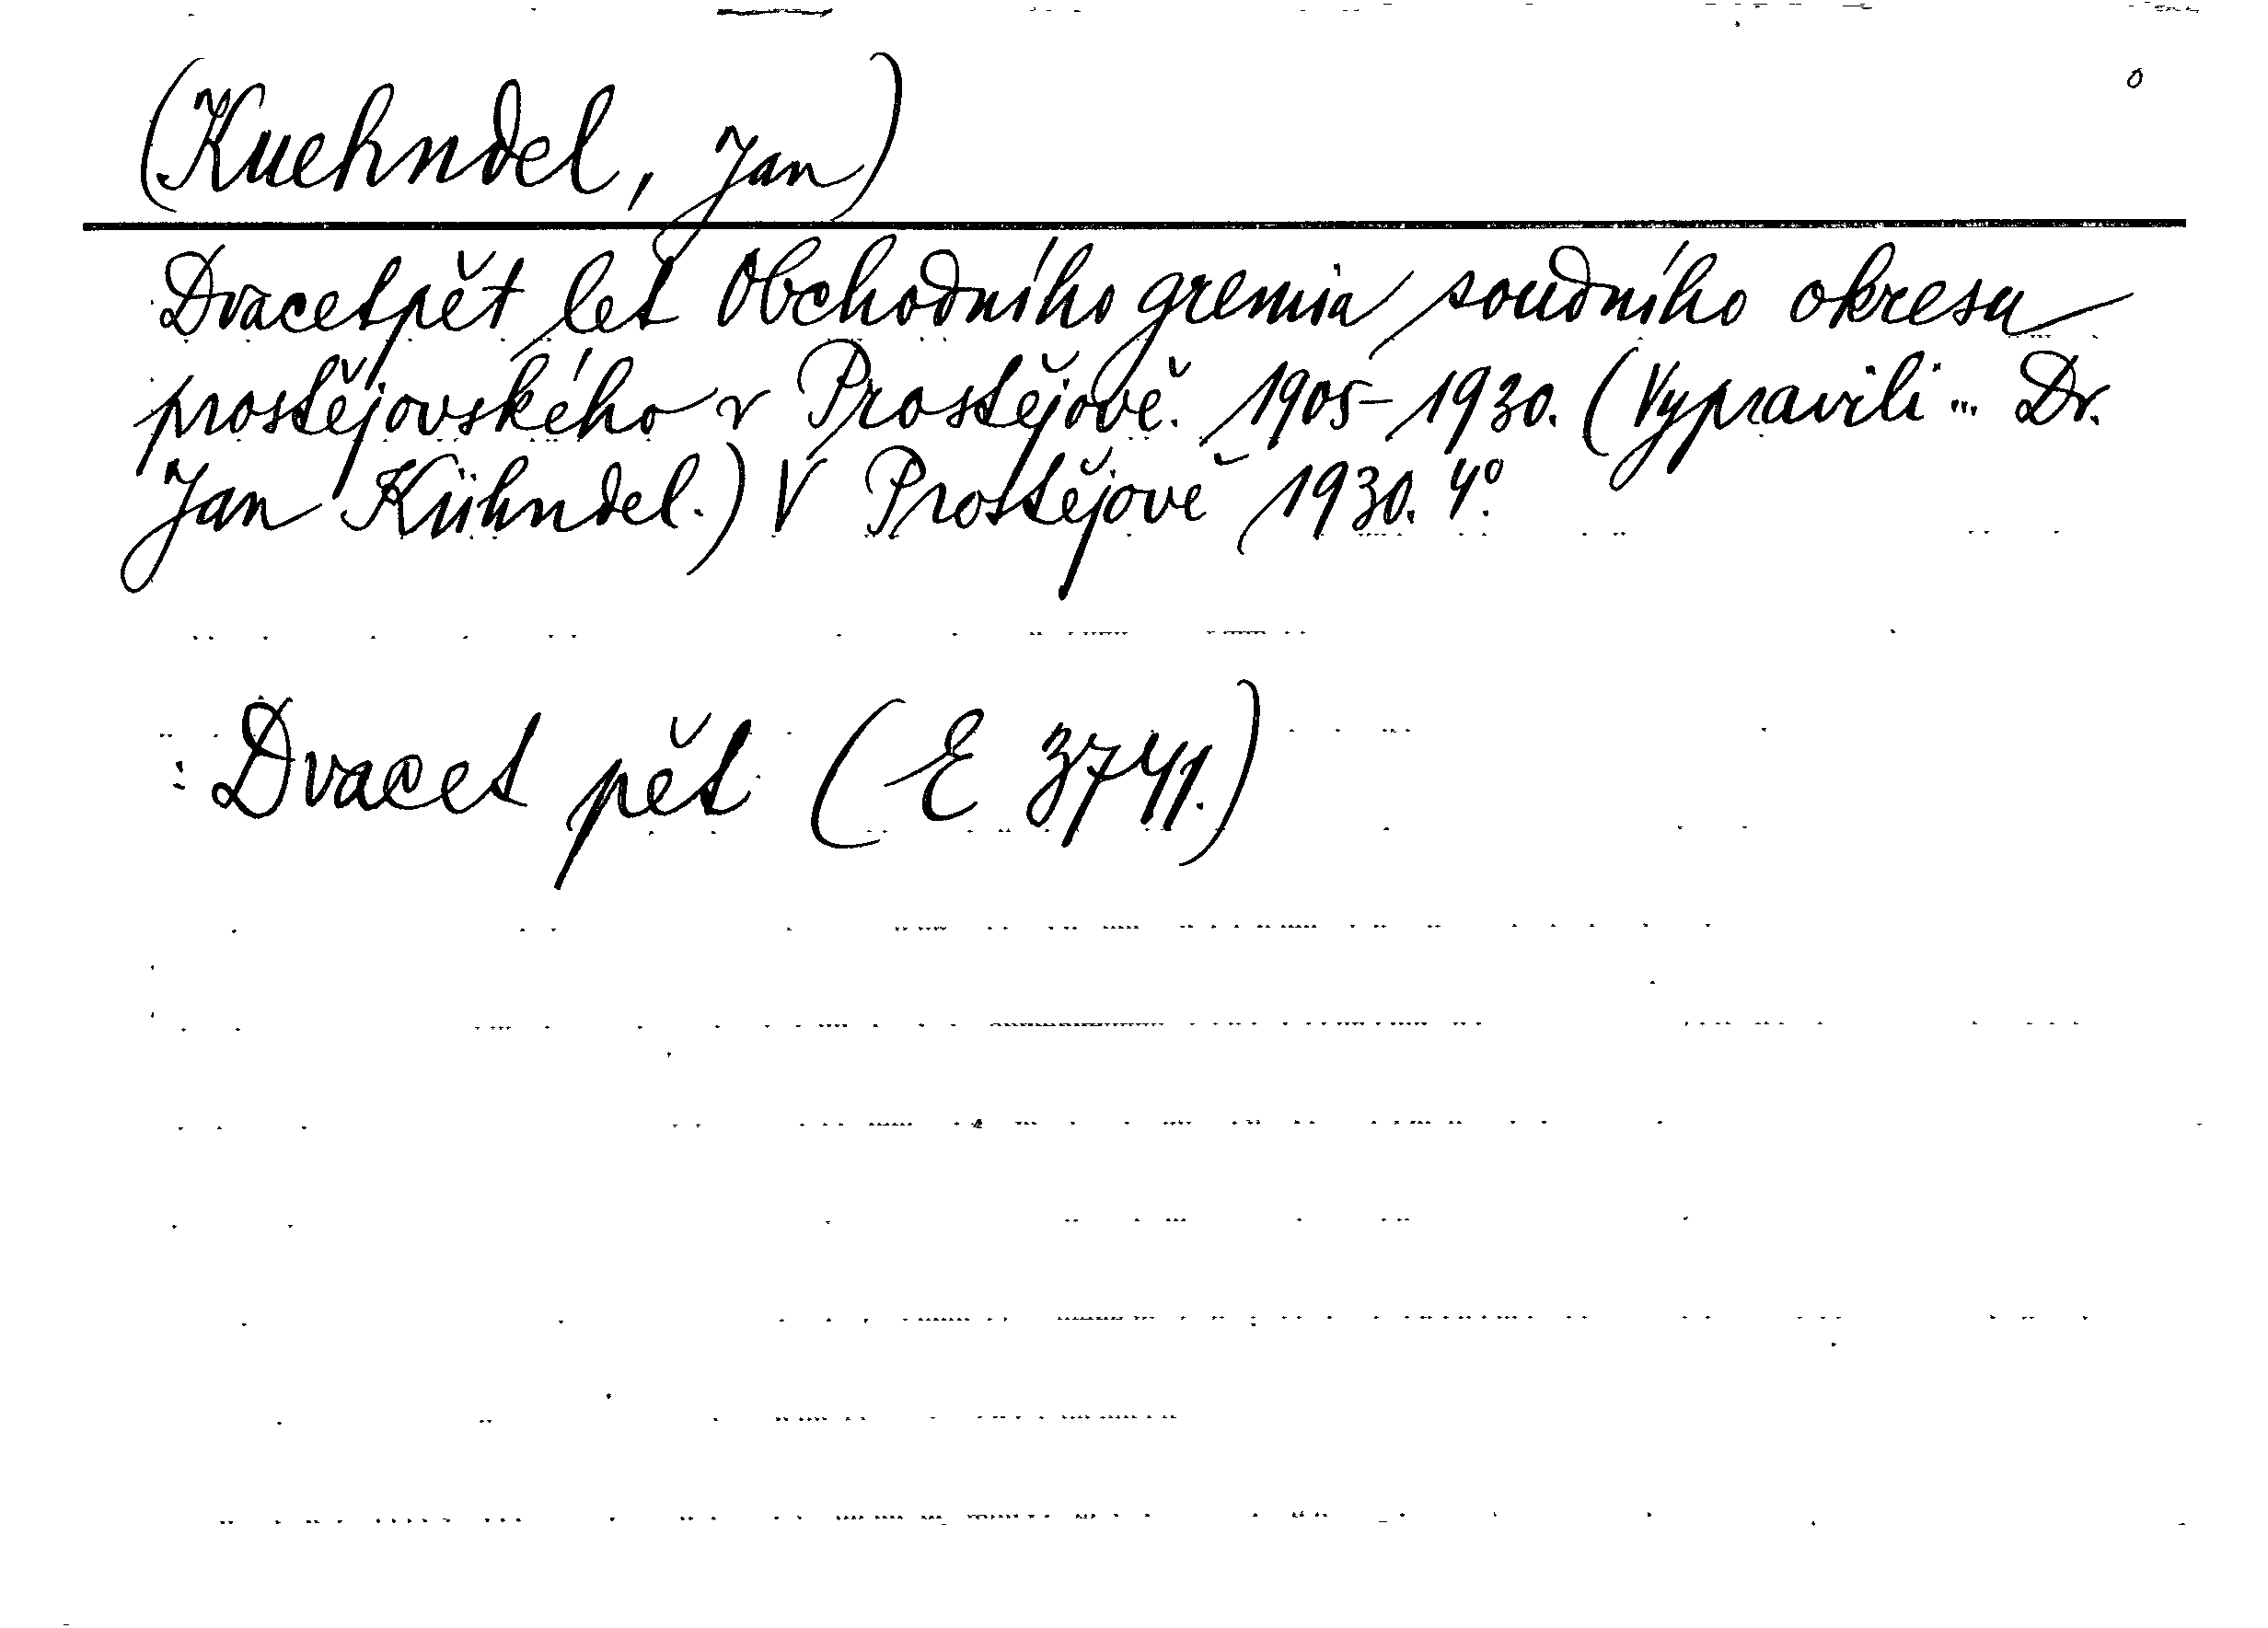 (Kuehndel, Jan)
Dvacetpět let Obchodního gremia soudního okresu
prostějovského v Prostějově. 1905-1930. (Vypravili ... Dr.
Jan Kühndel.) V Prostějově 1930. 4°.
Dvacet pět (E 3741.)